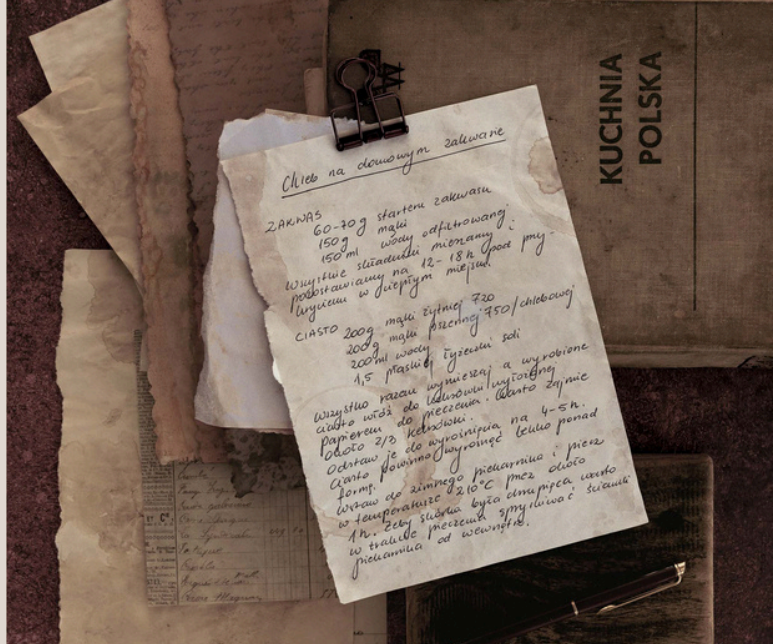 KUCHNIA
POLSKA
Chleb na domowym zakwasie
ZAKWAS
60-70 g startera zakwasu
150g mąki
150 ml wody odfiltrowanej
Wszystkie składniki mieszamy i
pozostawiamy na 12-18 h pod przy-
kryciem w ciepłym miejscu.
CIASTO 200g mąki żytniej 720
200g mąki pszennej 750/chlebowej
200ml wody
1,5 płaskiej łyżeczki soli
Wszystko razem wymieszaj a wyrobione
ciasto włóż do keksówki wyłożonej
papierem do pieczenia. Ciasto zajmie
około 2/3 keksówki.
Odstaw je do wyrośnięcia na 4-5 h.
Ciasto powinno wyrosnąć lekko ponad
formę.
Wstaw do zimnego piekarnika i piecz
w temperaturze 210°C przez około
1h. Żeby skórka była chrupiąca warto
w trakcie pieczenia spryskiwać ścianki
piekarnika od wewnątrz.